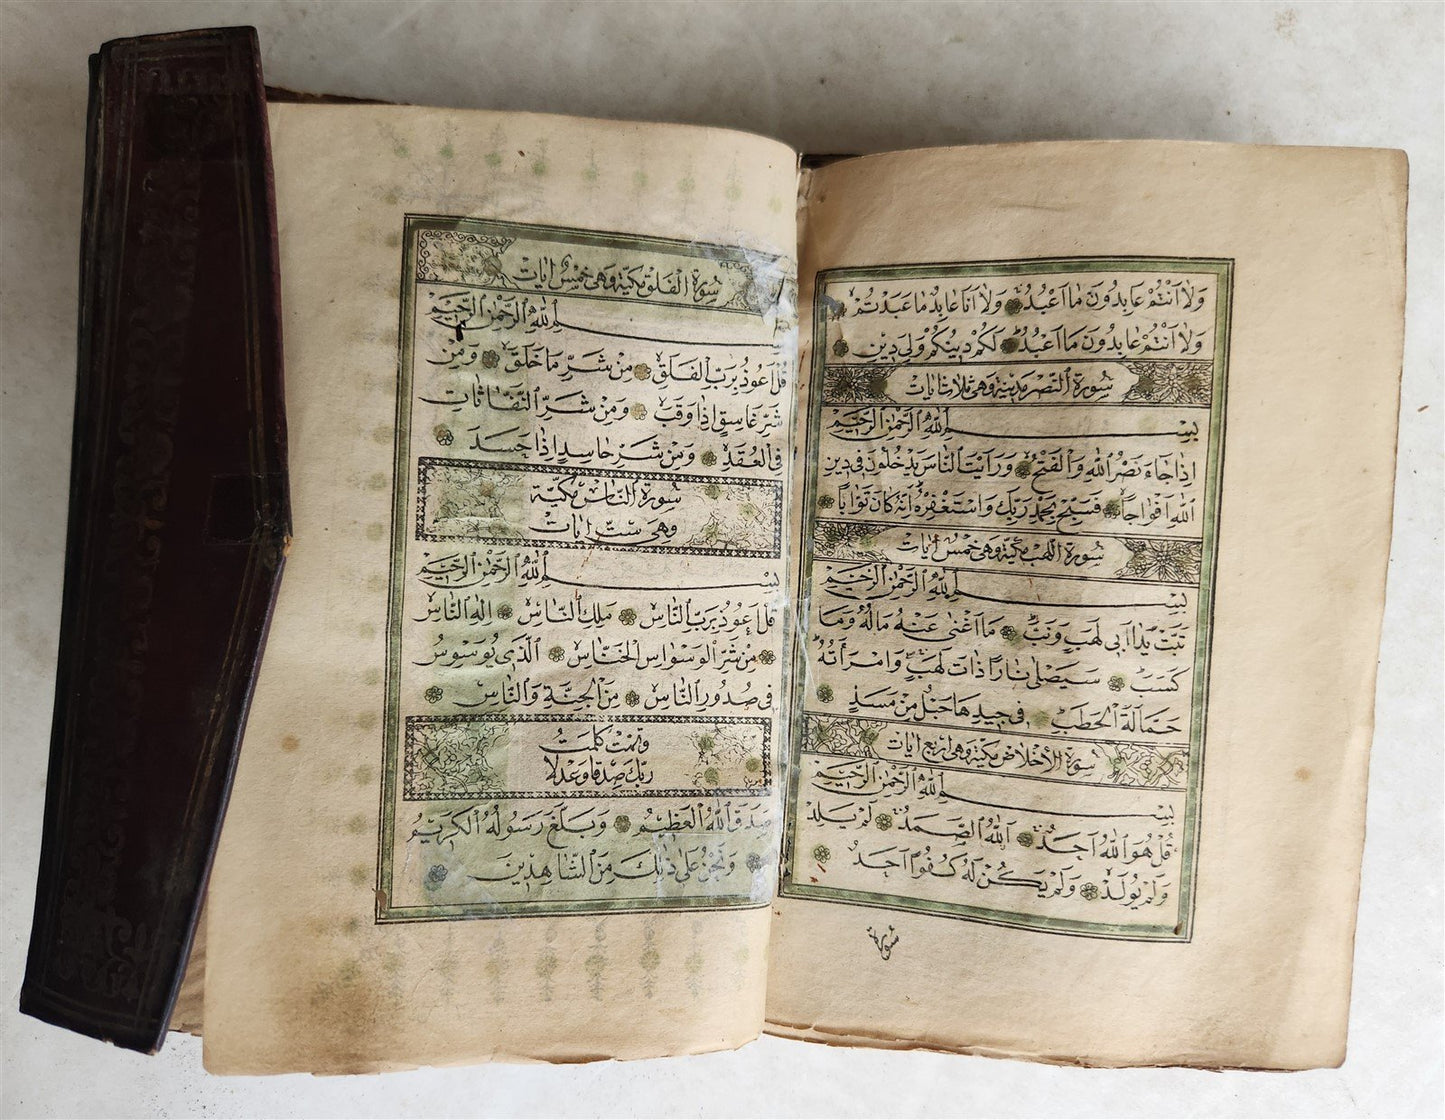 وَلَا أَنْتُمْ عَابِدُونَ مَا أَعْبُدُ وَلَا أَنَا عَابِدٌ مَا عَبَدْتُمْ
وَلَا أَنْتُمْ عَابِدُونَ مَا أَعْبُدُ لَكُمْ دِينُكُمْ وَلِيَ دِينِ
سُورَةُ النَّصْرِ مَدَنِيَّةٌ وَهِيَ ثَلَاثُ آيَاتٍ
بِسْمِ اللَّهِ الرَّحْمَنِ الرَّحِيمِ
إِذَا جَاءَ نَصْرُ اللَّهِ وَالْفَتْحُ وَرَأَيْتَ النَّاسَ يَدْخُلُونَ فِي دِينِ
اللَّهِ أَفْوَاجًا فَسَبِّحْ بِحَمْدِ رَبِّكَ وَاسْتَغْفِرْهُ إِنَّهُ كَانَ تَوَّابًا
سُورَةُ اللَّهَبِ مَكِّيَّةٌ وَهِيَ خَمْسُ آيَاتٍ
بِسْمِ اللَّهِ الرَّحْمَنِ الرَّحِيمِ
تَبَّتْ يَدَا أَبِي لَهَبٍ وَتَبَّ مَا أَغْنَى عَنْهُ مَالُهُ وَمَا
كَسَبَ سَيَصْلَى نَارًا ذَاتَ لَهَبٍ وَامْرَأَتُهُ
حَمَّالَةَ الْحَطَبِ فِي جِيدِهَا حَبْلٌ مِنْ مَسَدٍ
سُورَةُ الْإِخْلَاصِ مَكِّيَّةٌ وَهِيَ أَرْبَعُ آيَاتٍ
بِسْمِ اللَّهِ الرَّحْمَنِ الرَّحِيمِ
قُلْ هُوَ اللَّهُ أَحَدٌ اللَّهُ الصَّمَدُ لَمْ يَلِدْ
وَلَمْ يُولَدْ وَلَمْ يَكُنْ لَهُ كُفُوًا أَحَدٌ
سُورَة
سُورَةُ الْفَلَقِ مَكِّيَّةٌ وَهِيَ خَمْسُ آيَاتٍ
بِسْمِ اللَّهِ الرَّحْمَنِ الرَّحِيمِ
قُلْ أَعُوذُ بِرَبِّ الْفَلَقِ مِنْ شَرِّ مَا خَلَقَ وَمِنْ
شَرِّ غَاسِقٍ إِذَا وَقَبَ وَمِنْ شَرِّ النَّفَّاثَاتِ
فِي الْعُقَدِ وَمِنْ شَرِّ حَاسِدٍ إِذَا حَسَدَ
سُورَةُ النَّاسِ مَكِّيَّةٌ
وَهِيَ سِتُّ آيَاتٍ
بِسْمِ اللَّهِ الرَّحْمَنِ الرَّحِيمِ
قُلْ أَعُوذُ بِرَبِّ النَّاسِ مَلِكِ النَّاسِ إِلَهِ النَّاسِ
مِنْ شَرِّ الْوَسْوَاسِ الْخَنَّاسِ الَّذِي يُوَسْوِسُ
فِي صُدُورِ النَّاسِ مِنَ الْجِنَّةِ وَالنَّاسِ
وَتَمَّتْ كَلِمَتُ
رَبِّكَ صِدْقًا وَعَدْلًا
صَدَقَ اللَّهُ الْعَظِيمُ وَبَلَّغَ رَسُولُهُ الْكَرِيمُ
وَنَحْنُ عَلَى ذَلِكَ مِنَ الشَّاهِدِينَ